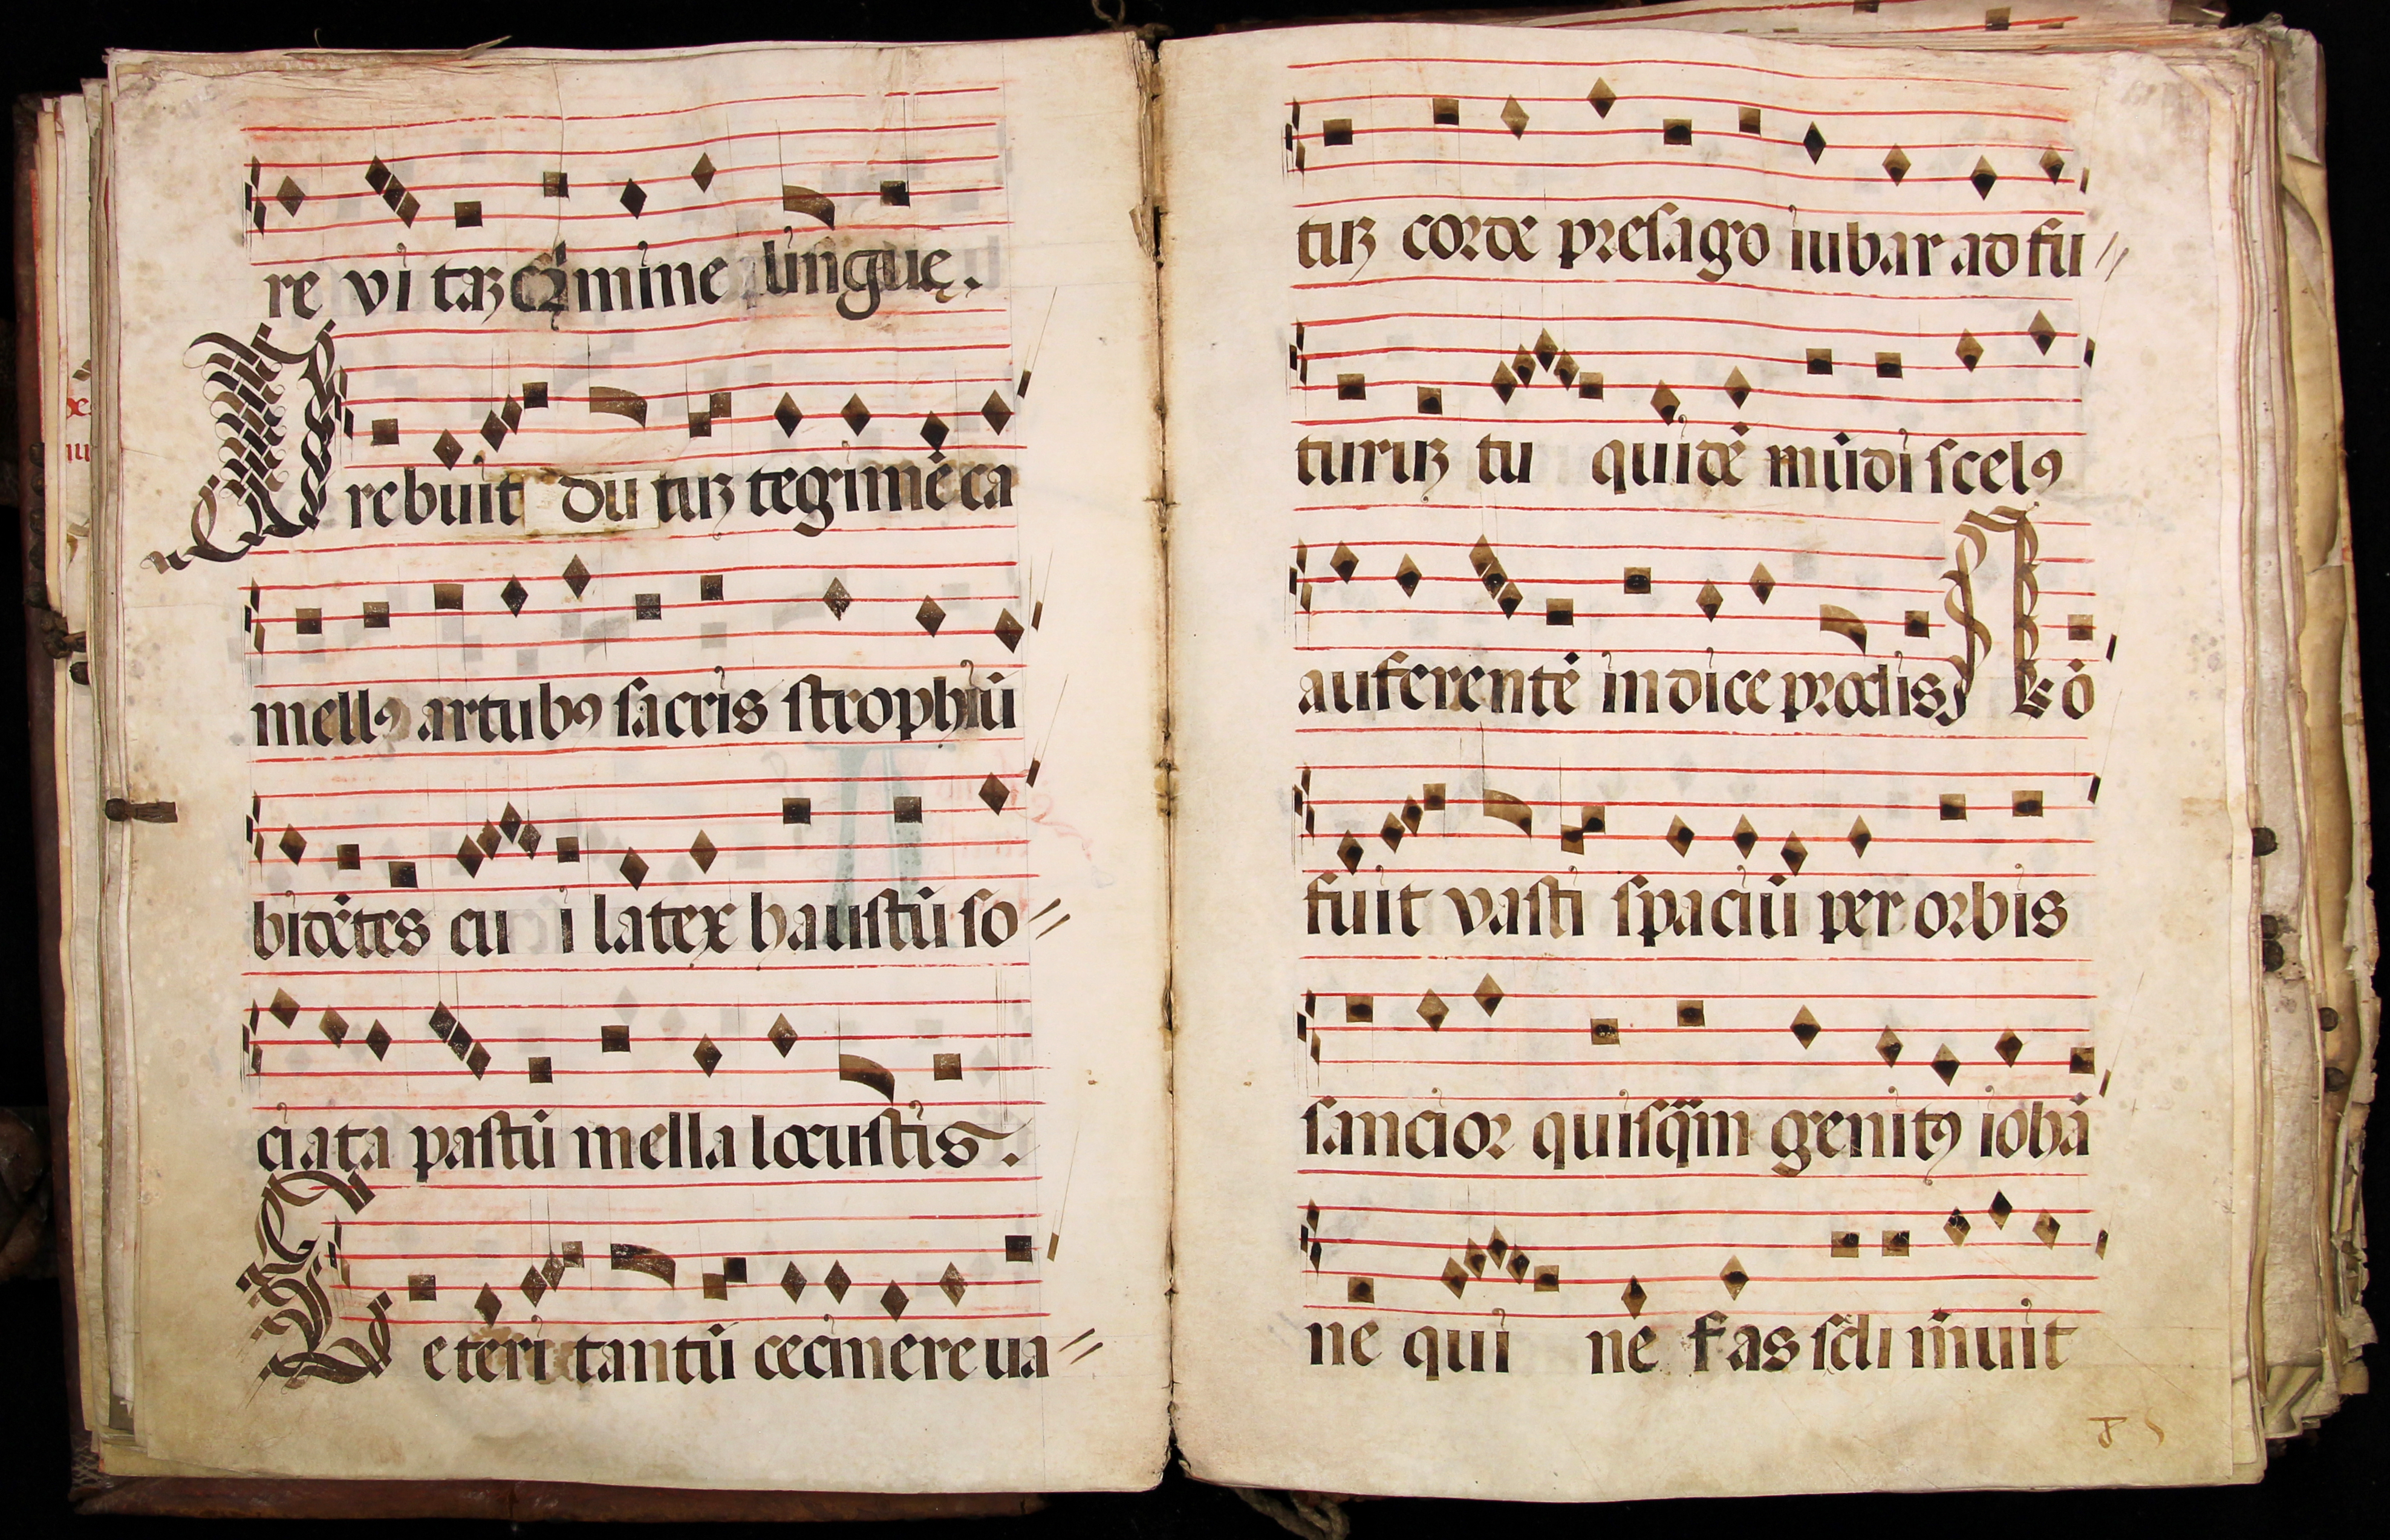 re vi taꝫ c̃mine lingue.
P rebuit du tuꝝ tegimē ca
mellꝯ artubꝯ sacris strophiū
bidētes cu i latex haustū so
ciata pastū mella locustis.
C eteri tantū cecinere ua
tuꝝ corde presago iubar ad fu
turuꝝ tu quidē mūdi scelꝯ
auferentē indice prodis N ō
fuit vasti spaciū per orbis
sanctior quisq̄m genitꝯ iohā
ne qui nē fas scli m̄uit